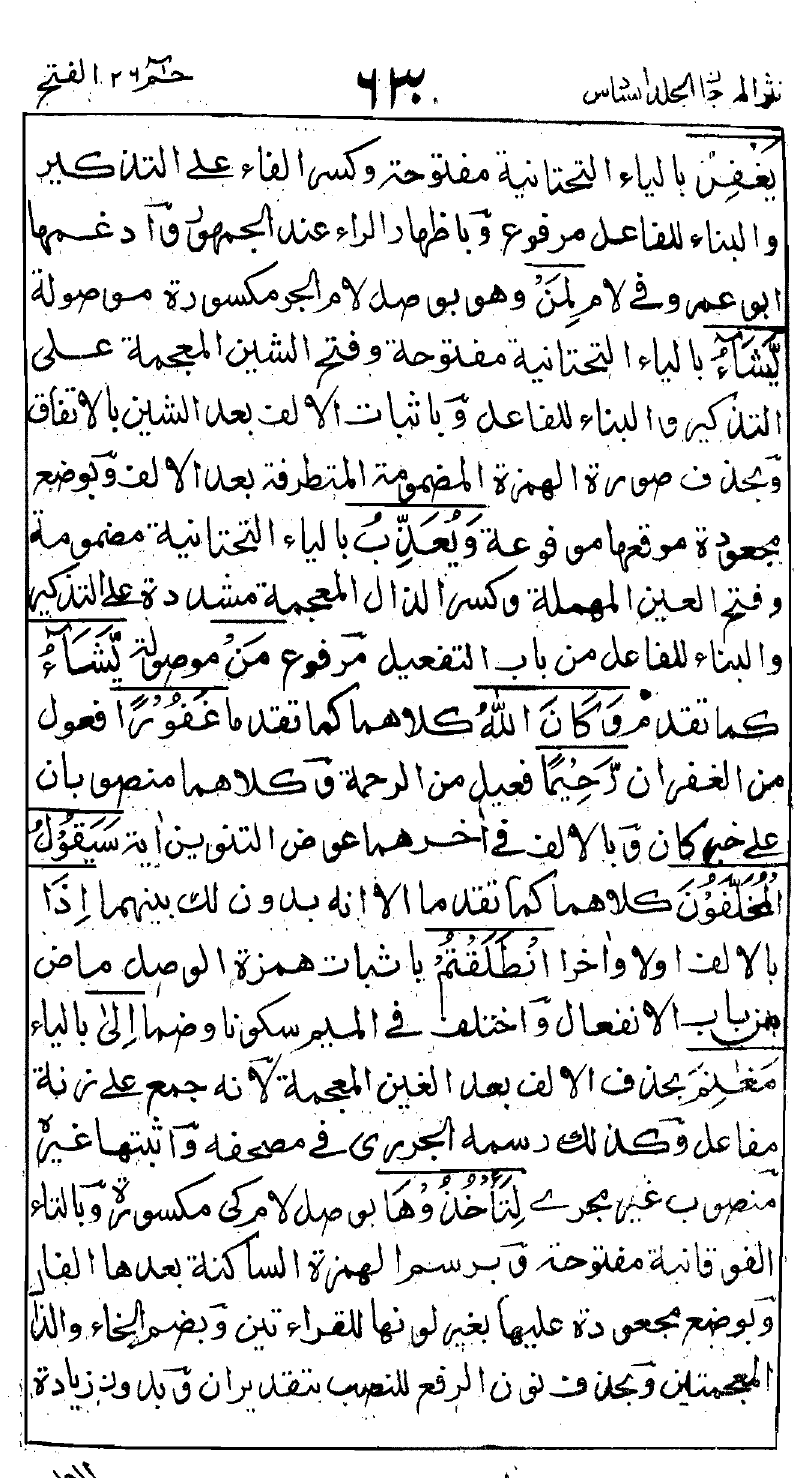 نثر المرجان المجلد السادس ٦٣٠ حٰم ٢٦ الفتح
يَغْفِرُ بالياء التحتانية مفتوحة وكسر الفاء على التذكير
والبناء للفاعل مرفوع وباظهار الراء عند الجمهور وادغمها
ابو عمرو في لام لِمَنْ وهو بوصل لام الجر مكسورة موصولة
يَّشَآءُ بالياء التحتانية مفتوحة وفتح الشين المعجمة على
التذكير والبناء للفاعل وباثبات الالف بعد الشين بالاتفاق
وبحذف صورة الهمزة المضمومة المتطرفة بعد الالف وبوضع
مجعودة موقعها مرفوعة وَيُعَذِّبُ بالياء التحتانية مضمومة
وفتح العين المهملة وكسر الذال المعجمة مشددة على التذكير
والبناء للفاعل من باب التفعيل مرفوع مَنْ موصولة يَّشَآءُ
كما تقدم وَكَانَ اللّٰهُ كلاهما كما تقدما غَفُوْرًا فعول
من الغفران رَّحِيْمًا فعيل من الرحمة وكلاهما منصوبان
على خبر كان وبالالف في اٰخرهما عوض التنوين اٰية سَيَقُوْلُ
الْمُخَلَّفُوْنَ كلاهما كما تقدما الا انه بدون لك بينهما اِذَا
بالالف اولا واٰخرا انْطَلَقْتُمْ باثبات همزة الوصل ماض
من باب الانفعال واختلف في الميم سكونا وضما اِلىٰ بالياء
مَغٰنِمَ بحذف الالف بعد الغين المعجمة لانه جمع على زنة
مفاعل وكذلك رسمه الجزرى في مصحفه واثبتها غيره
منصوب غير مجرے لِتَأْخُذُوْهَا بوصل لام كى مكسورة وبالتاء
الفوقانية مفتوحة وبرسم الهمزة الساكنة بعدها الفا
وبوضع مجعودة عليها بغير لونها للقراءتين وبضم الخاء والذال
المعجمتين وبحذف نون الرفع للنصب بتقدير ان وبدون زيادة